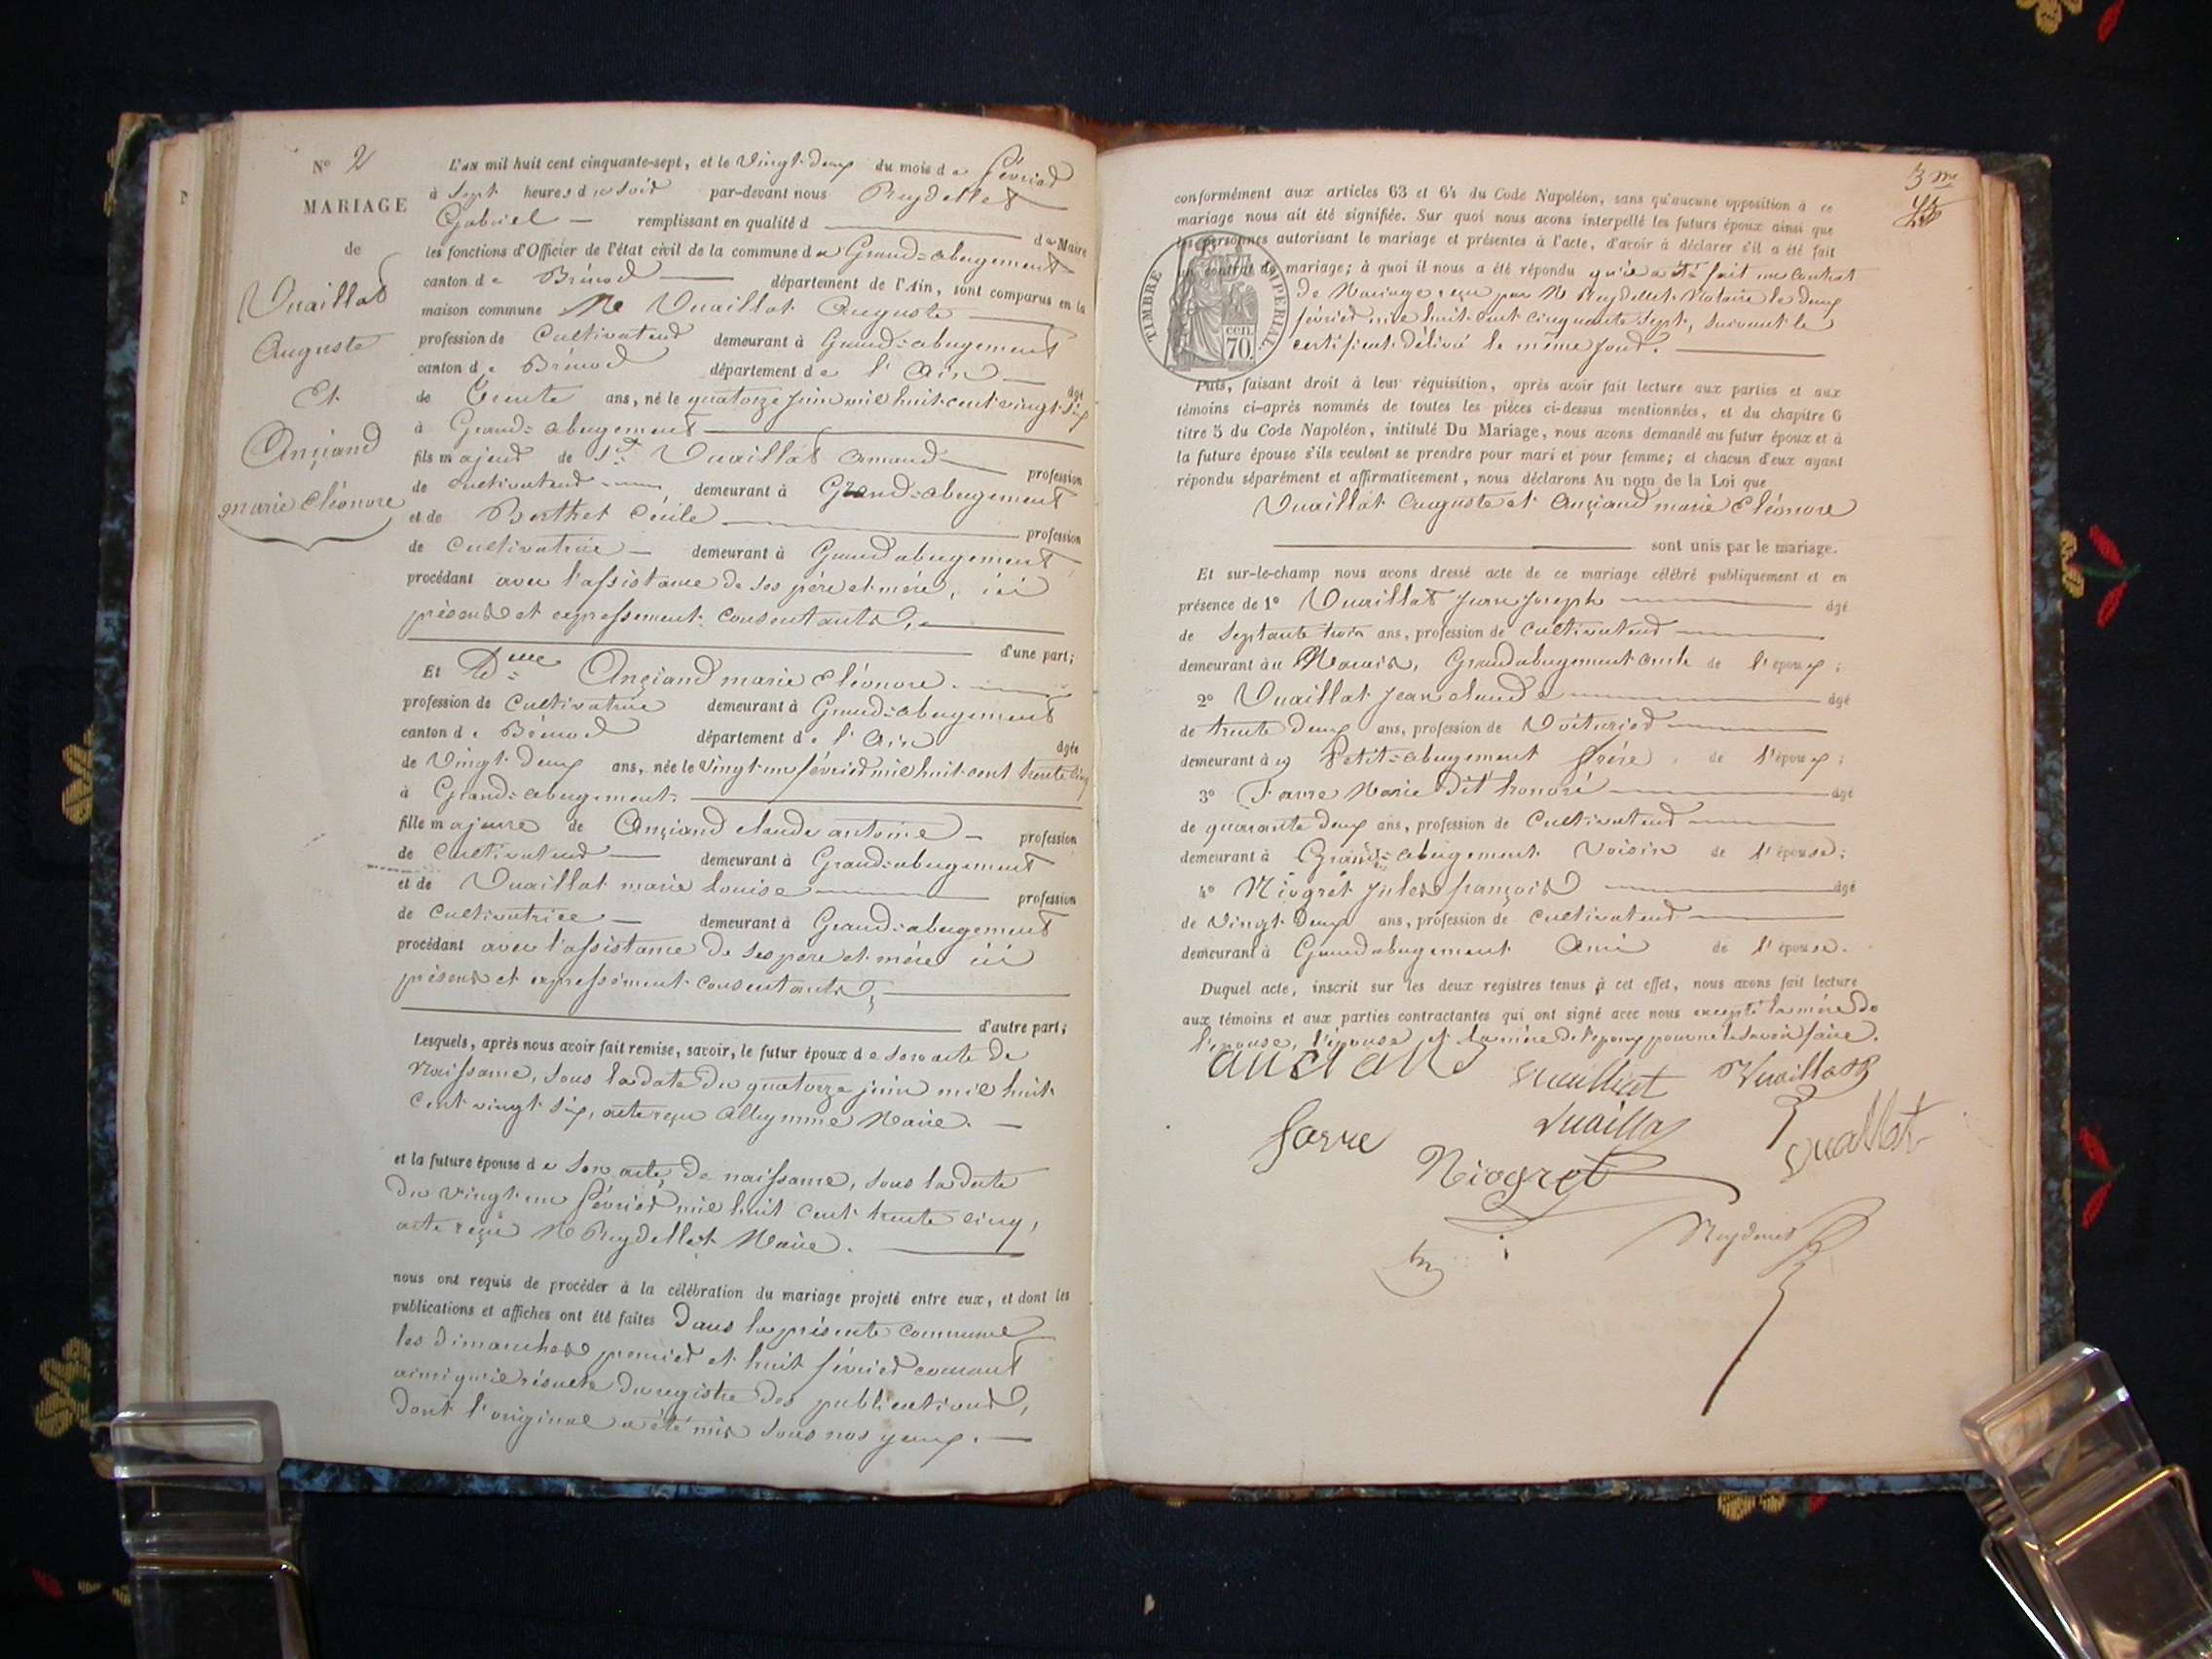 N° 2
MARIAGE
de
Vuaillat
Auguste
Et
Ançiand
marie Eléonore
L'an mil huit cent cinquante-sept, et le vingt deux du mois de février
à sept heures du soir par-devant nous Reydellet
Gabriel remplissant en qualité d de Maire
les fonctions d'Officier de l'état civil de la commune de Grand=abergement
canton de Brénod département de l'Ain, sont comparus en la
maison commune Vuaillat Auguste
profession de Cultivateur demeurant à Grand=abergement
canton de Brénod département de l'Ain âgé
de trente ans, né le quatorze juin mil huit cent vingt six
à Grand=abergement
fils majeur de Sr Vuaillat Armand profession
de cultivateur demeurant à Grand=abergement
et de Berthet Cécile profession
de Cultivatrice demeurant à Grand abergement
procédant avec l'assistance de ses père et mère, ici
présens et expressement consentants,
d'une part;
Et Dlle Ançiand marie Eléonore
profession de Cultivatrice demeurant à Grand=abergement
canton de Brénod département de l'Ain âgée
de vingt deux ans, née le vingt un février mil huit cent trente cinq
à Grand=abergement
fille majeure de Ançiand claude antoine profession
de cultivateur demeurant à Grand=abergement
et de Vuaillat marie Louise profession
de Cultivatrice demeurant à Grand=abergement
procédant avec l'assistance de ses père et mère ici
présens et expressément consentants,
d'autre part;
Lesquels, après nous avoir fait remise, savoir, le futur époux de son acte de
Naissance, sous la date du quatorze juin mil huit
cent vingt six, acte reçu Maire.
et la future épouse de son acte de naissance, sous la date
du vingt un février mil huit cent trente cinq,
acte reçu Mr Reydellet Maire.
nous ont requis de procéder à la célébration du mariage projeté entre eux, et dont les
publications et affiches ont été faites dans la présente commune
les dimanches premier et huit février courant
ainsi qu'il résulte du registre des publications,
dont l'original a été mis sous nos yeux.
3me
conformément aux articles 63 et 64 du Code Napoléon, sans qu'aucune opposition à ce
mariage nous ait été signifiée. Sur quoi nous avons interpellé les futurs époux ainsi que
les personnes autorisant le mariage et présentes à l'acte, d'avoir à déclarer s'il a été fait
un contrat de mariage; à quoi il nous a été répondu qu'il a été fait un Contrat
de Mariage reçu par Me Reydellet Notaire le deux
février mil huit cent cinquante sept, suivant le
certificat délivré le même jour.
TIMBRE IMPERIAL
70 cen.
Puis, faisant droit à leur réquisition, après avoir fait lecture aux parties et aux
témoins ci-après nommés de toutes les pièces ci-dessus mentionnées, et du chapitre 6
titre 5 du Code Napoléon, intitulé Du Mariage, nous avons demandé au futur époux et à
la future épouse s'ils veulent se prendre pour mari et pour femme; et chacun d'eux ayant
répondu séparément et affirmativement, nous déclarons Au nom de la Loi que
Vuaillat Auguste et Ançiand marie Eléonore
sont unis par le mariage.
Et sur-le-champ nous avons dressé acte de ce mariage célébré publiquement et en
présence de 1° Vuaillat Jean Joseph âgé
de septante trois ans, profession de cultivateur
demeurant au Marais, Grand abergement oncle de l'époux;
2° Vuaillat Jean claude âgé
de trente deux ans, profession de Voiturier
demeurant à Petit=abergement frère de l'époux;
3° Favre Marie dit honoré âgé
de quarante deux ans, profession de Cultivateur
demeurant à Grand=abergement Voisin de l'épouse;
4° Niogret Jules françois âgé
de vingt deux ans, profession de cultivateur
demeurant à Grand abergement Ami de l'épouse.
Duquel acte, inscrit sur les deux registres tenus à cet effet, nous avons fait lecture
aux témoins et aux parties contractantes qui ont signé avec nous excepté la mère de
l'épouse, l'épouse et la mère de l'époux pour ne le savoir faire.
anciand Vuaillat Vuaillat
favre Vuaillat Vuallat
Niogret
Reydellet